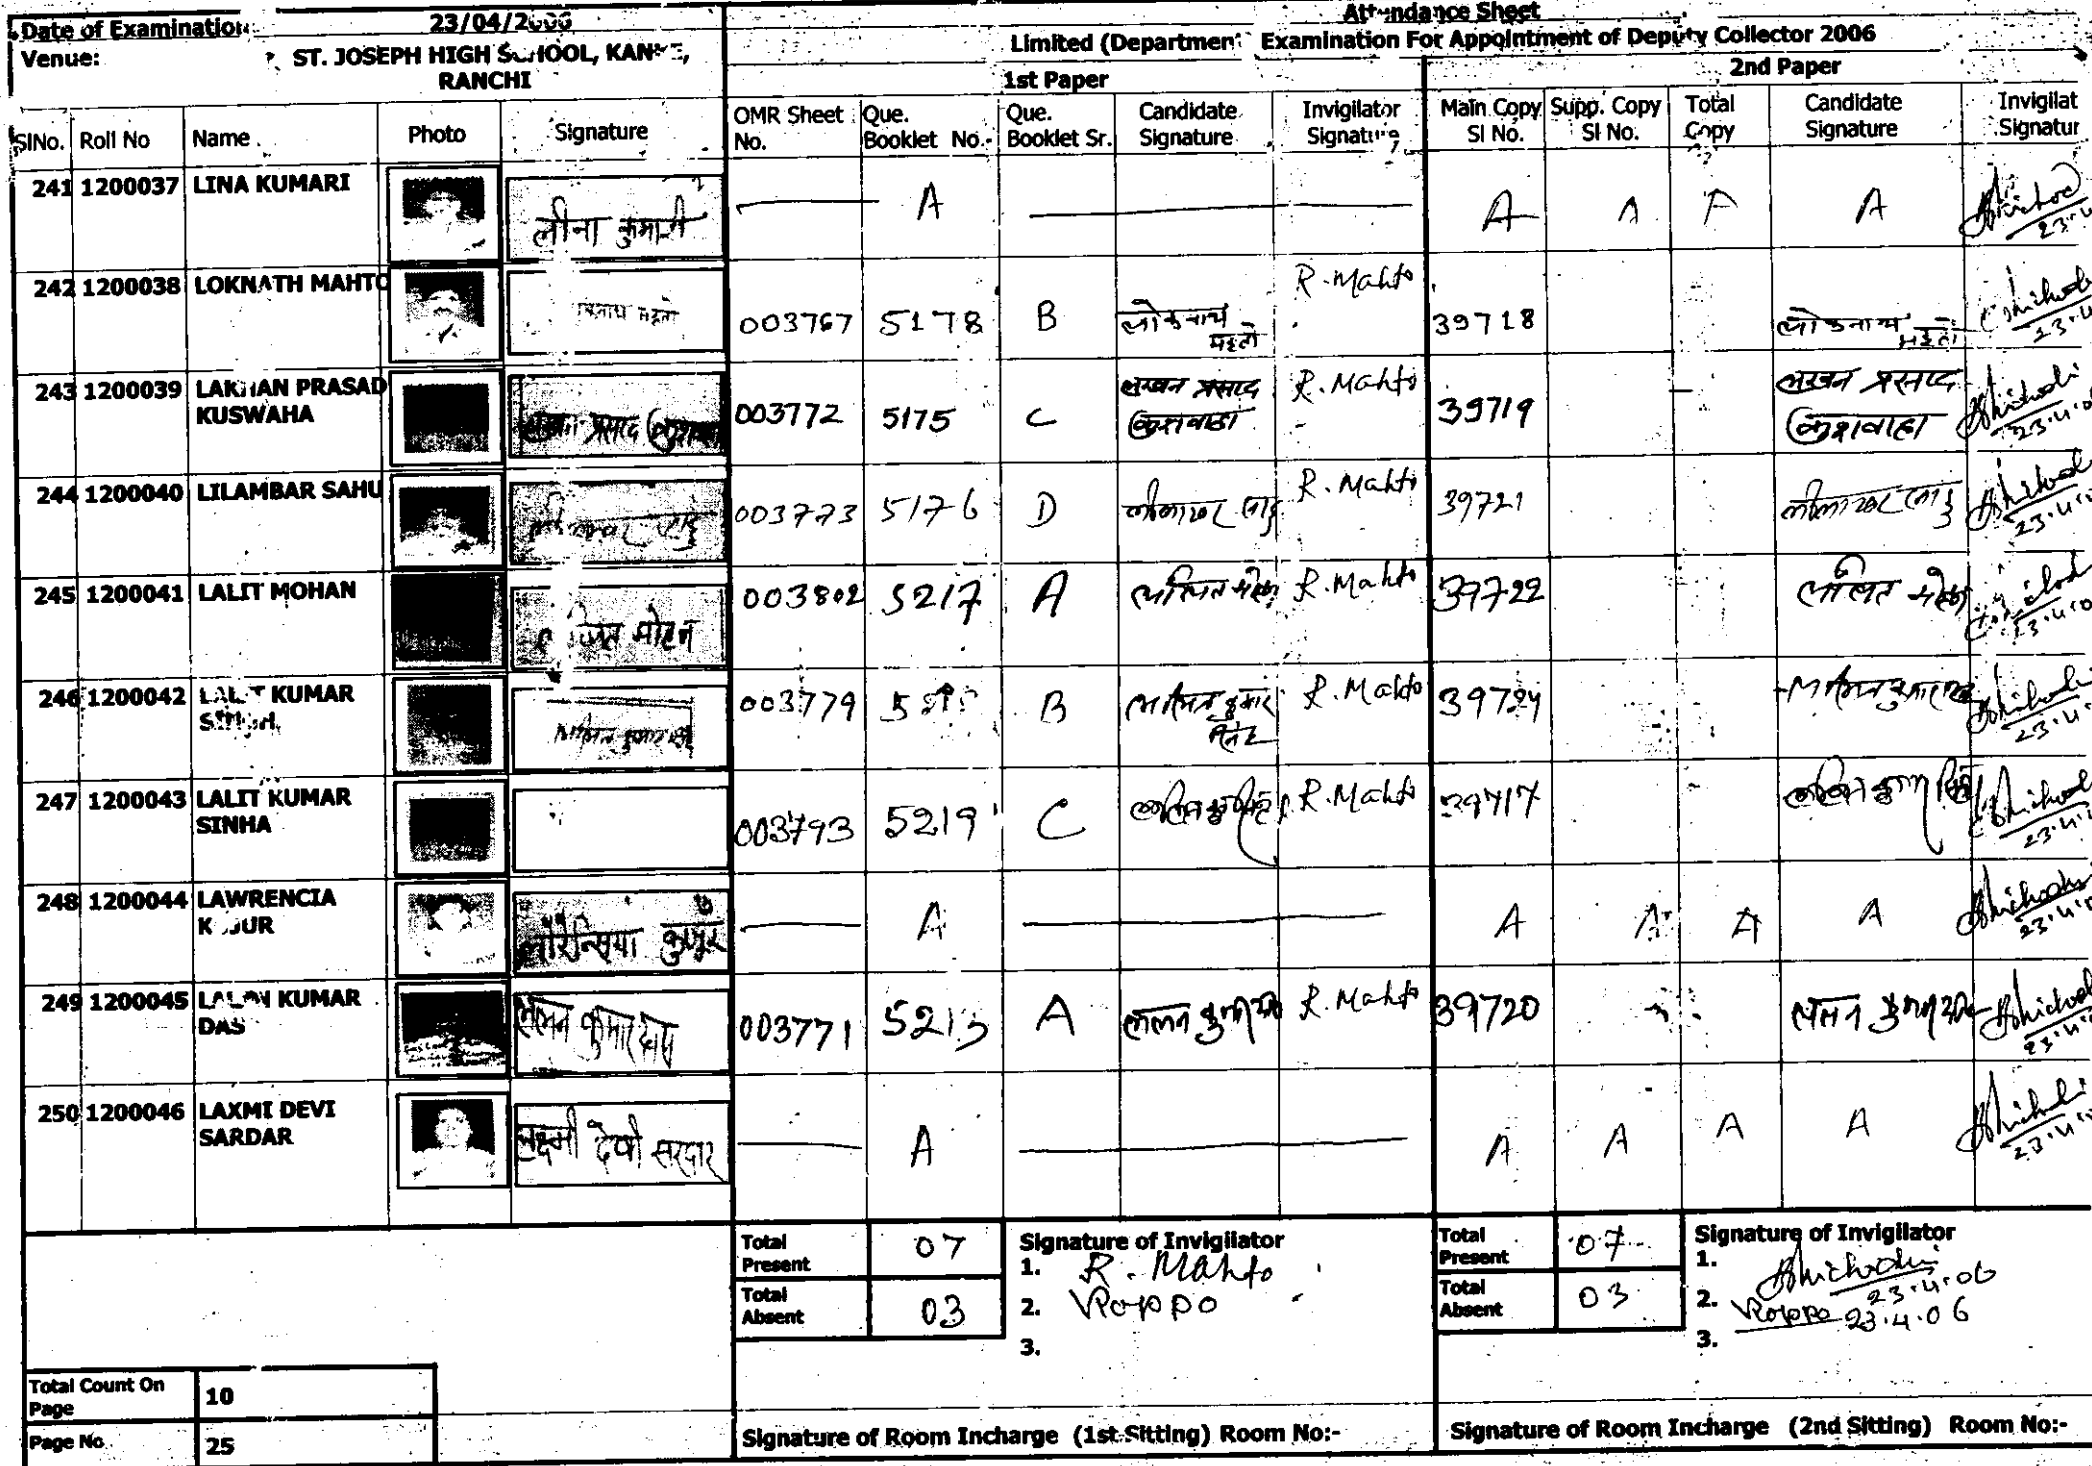 Attendance Sheet
Date of Examination 23/04/2006
Limited (Department Examination For Appointment of Deputy Collector 2006
Venue: ST. JOSEPH HIGH SCHOOL, KANKE,
RANCHI
1st Paper 2nd Paper
SlNo. Roll No Name Photo Signature OMR Sheet No. Que. Booklet No.- Que. Booklet Sr. Candidate Signature Invigilator Signature Main Copy Sl No. Supp. Copy Sl No. Total Copy Candidate Signature Invigilat Signatur
241 1200037 LINA KUMARI लीना कुमारी A A A A A
23.4
242 1200038 LOKNATH MAHTO 003767 5178 B लोकनाथ महतो R. Mahto 39718 लोकनाथ महतो
23.4
243 1200039 LAKHAN PRASAD
KUSWAHA
003772 5175 C लखन प्रसाद कुशवाहा R. Mahto 39719 लखन प्रसाद कुशवाहा
23.4.0
244 1200040 LILAMBAR SAHU 003773 5176 D R. Mahto 39721
23.4
245 1200041 LALIT MOHAN मोहन 003802 5217 A ललित मोहन R. Mahto 39722 ललित मोहन
23.4.0
246 1200042 LALIT KUMAR
SINGH
003779 B ललित कुमार सिंह R. Mahto 39724
23.4
247 1200043 LALIT KUMAR
SINHA
003793 5219 C R. Mahto 39717
23.4
248 1200044 LAWRENCIA
लौरेन्सिया कुजूर A A A A A
23.4
249 1200045 LALAN KUMAR
DAS
ललन कुमार दास 003771 A ललन R. Mahto 39720 ललन
23.4
250 1200046 LAXMI DEVI
SARDAR
लक्ष्मी देवी सरदार A A A A A
23.4
Total Present 07 Signature of Invigilator Total Present 07 Signature of Invigilator
1. R. Mahto 1.
23.4.06
Total Absent 03 2. Total Absent 03 2. 23.4.06
3. 3.
Total Count On Page 10
Page No. 25
Signature of Room Incharge (1st Sitting) Room No:- Signature of Room Incharge (2nd Sitting) Room No:-